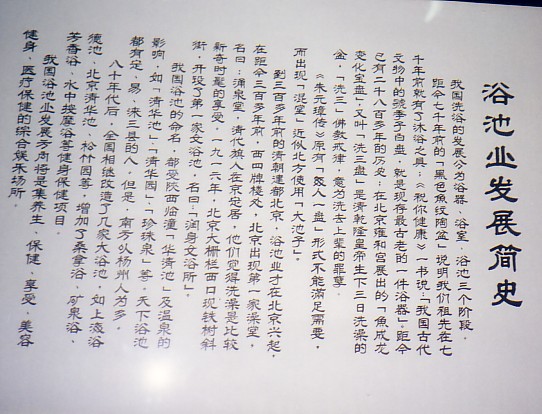 浴池业发展简史
我国洗浴的发展分为浴器、浴室、浴池三个阶段。
距今七千年前的「黑色鱼纹陶盆」说明我们祖先在七
千年前就有了沐浴之具；《祝你健康》一书说：「我国古代
文物中的虢季子白盘，就是现存最古老的一件浴器」。距今
已有二十八百多年的历史；在北京雍和宫展出的「鱼成龙
变化宝盆」又叫「洗三盆」是清乾隆皇帝生下三日洗澡的
盆，「洗三」佛教戒律，意为洗去上辈的罪孽。
《朱元璋传》原有「数人一盘」形式不能满足需要，
而出现「混堂」近似北方使用「大池子」。
到三百多年前的清朝建都北京，浴池业才在北京兴起，
在距今三百多年前，西四牌楼处，北京出现第一家澡堂，
名曰：涌泉堂，清代旗人在京定居，他们觉得洗澡是比较
新奇时髦的享受，一九一六年，北京大栅栏西口现铁树斜
街，开设了第一家女浴池，名曰：「润身女浴所」。
我国浴池的命名，都受陕西临潼「华清池」及温泉的
影响，如「清华池」、「清华园」、「珍珠泉」等。天下浴池
都有定、易、涞三县的人，但是，南方以杨州人为多。
八十年代后，全国相继改造了几家大浴池，如上海浴
德池、北京清华池、松竹园等，增加了桑拿浴、矿泉浴，
芳香浴、水中按摩浴等健身保健项目。
我国浴池业发展方向将是集养生、保健、享受、美容
健身、医疗保健的综合娱乐场所。